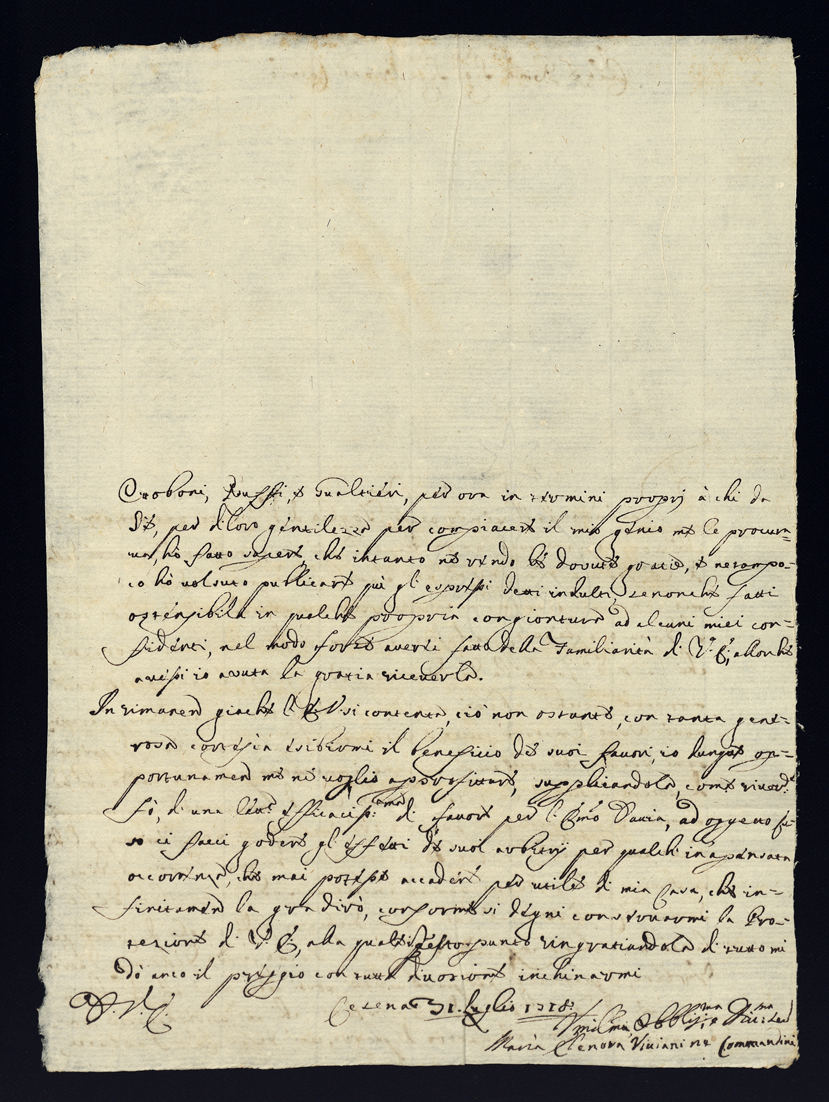 Ottoboni, Ruffi, e Gualtieri, per ora in termini proprj à chi da
Sè, per di loro gentilezza per compiacere il mio genio me le procura=
va hò fatto sapere, che intanto ne rendo le dovute gratie, e netampo=
co hò volsuto publicare quì gl' espressi detti indulti, senonche fatti
ostensibili in qualche propria congiontura ad alcuni miei con=
fidenti, nel modo forse averei fatto della Familiarità di V. E., allorche
avessi io avuta la gratia riceverla.
In rimanen giache l' E. V. si contenta, ciò non ostante, con tanta gene=
rosa cortesia esibirmi il beneficio de suoi favori, io dunque op=
portunamen me ne voglio approfittare, supplicandola, come river.
fò, di una efficaciss.ma di favore per l' Emo Davia, ad oggetto
ci facci godere gl' effetti de suoi arbitrij per qualche inapensata
occorenza, che mai potesse accadere per utile di mia Casa, che in=
finitamen la gradirò, conforme si degni conservarmi la Pro=
tezione di V. E., alla quale questo punto ringratiandola di tutto mi
dò anco il preggio con tutta divozione inchinarmi
D. V. E.
Cesena 31. Luglio 1718.
Umilma Obbligma
Maria Elenora Viviani ne Commandini